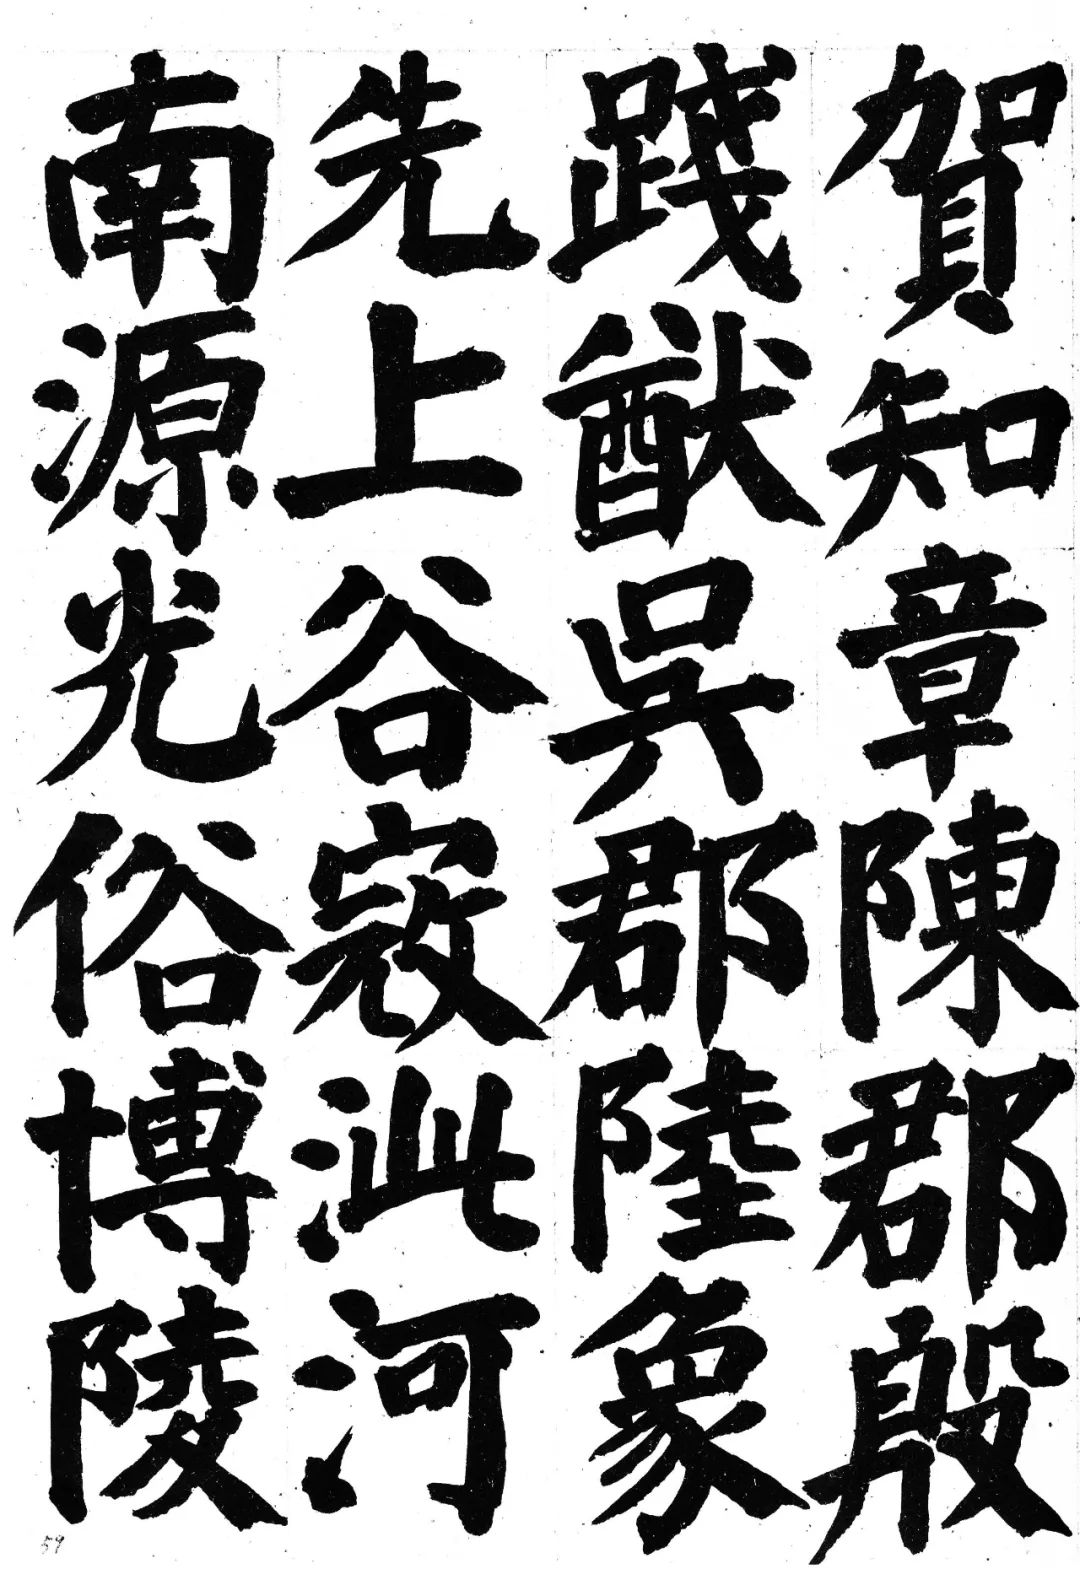 賀知章陳郡殷
踐猷吳郡陸象
先上谷寇泚河
南源光俗博陵
59